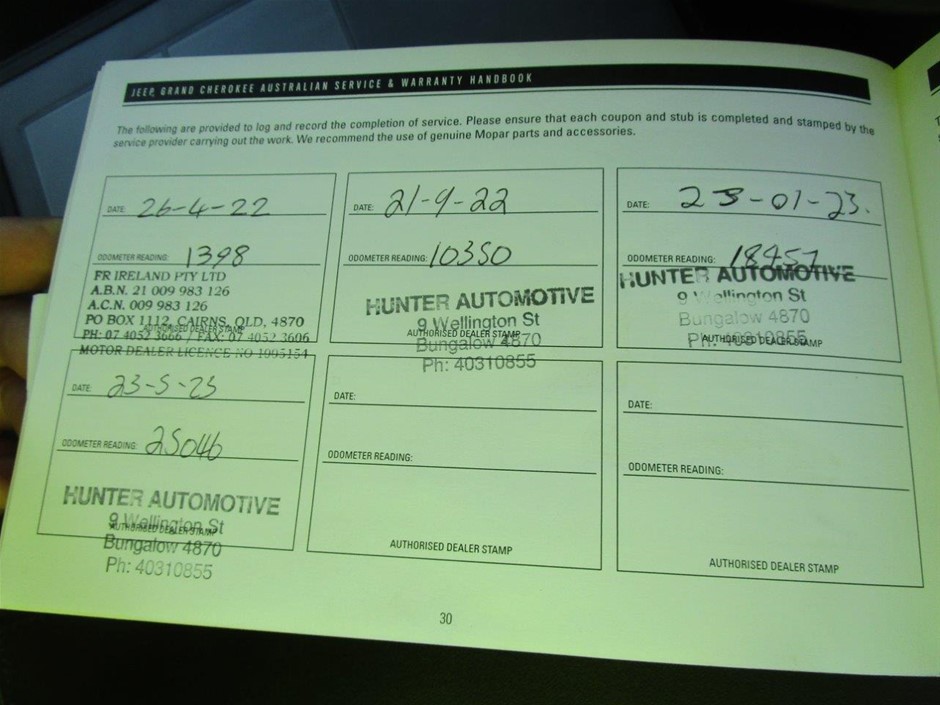 JEEP GRAND CHEROKEE AUSTRALIAN SERVICE & WARRANTY HANDBOOK
The following are provided to log and record the completion of service. Please ensure that each coupon and stub is completed and stamped by the
service provider carrying out the work. We recommend the use of genuine Mopar parts and accessories.
DATE: 26-4-22
ODOMETER READING: 1398
FR IRELAND PTY LTD
A.B.N. 21 009 983 126
A.C.N. 009 983 126
PO BOX 1112, CAIRNS, QLD, 4870
AUTHORISED DEALER STAMP
PH: 07 4052 3666 / FAX: 07 4052 3606
MOTOR DEALER LICENCE NO 1995154
DATE: 21-9-22
ODOMETER READING: 10350
HUNTER AUTOMOTIVE
9 Wellington St
AUTHORISED DEALER STAMP
Bungalow 4870
Ph: 40310855
DATE: 23-01-23.
ODOMETER READING: 18457
HUNTER AUTOMOTIVE
9 Wellington St
Bungalow 4870
Ph: 40310855
AUTHORISED DEALER STAMP
DATE: 23-5-23
ODOMETER READING: 25046
HUNTER AUTOMOTIVE
9 Wellington St
AUTHORISED DEALER STAMP
Bungalow 4870
Ph: 40310855
DATE:
ODOMETER READING:
AUTHORISED DEALER STAMP
DATE:
ODOMETER READING:
AUTHORISED DEALER STAMP
30